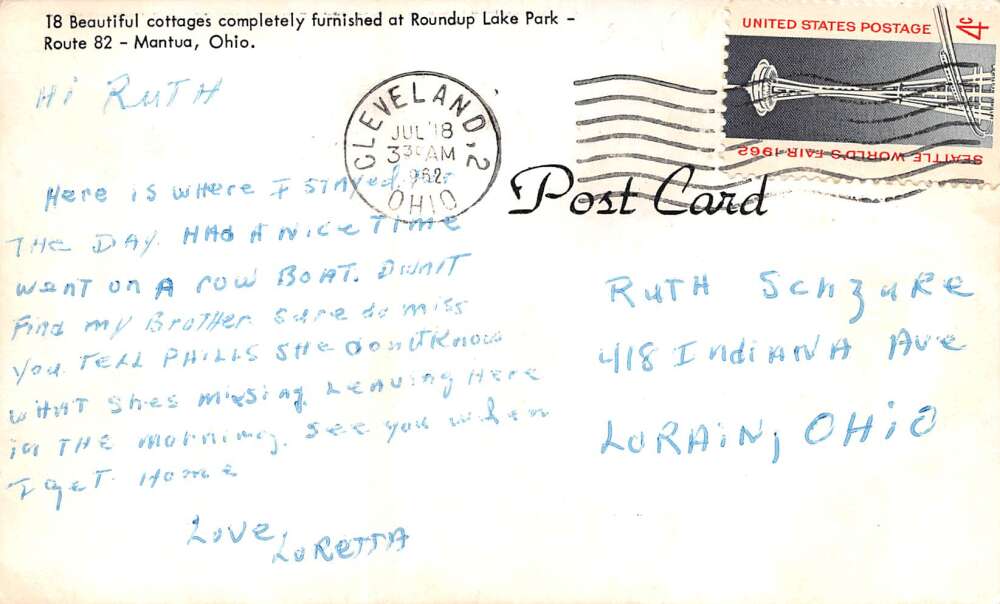 18 Beautiful cottages completely furnished at Roundup Lake Park -
Route 82 - Mantua, Ohio.
UNITED STATES POSTAGE 4c
SEATTLE WORLD'S FAIR·1962
CLEVELAND, 2
JUL 18
3 30 AM
1962
OHIO
Post Card
Hi RuTH
Here is where I stayed for
THE DAY. HAD A Nice Time
went on A row BoAT. Didn't
Find my BroTHer. sure do miss
You. TELL PHILLS SHe don't Know
wHAT SHes missing. Leaving Here
in THE morning. See you when
I get Home
Love,
LoReTTA
RuTH ScHzuRe
418 IndiANA Ave
LoRAiN, OHiO